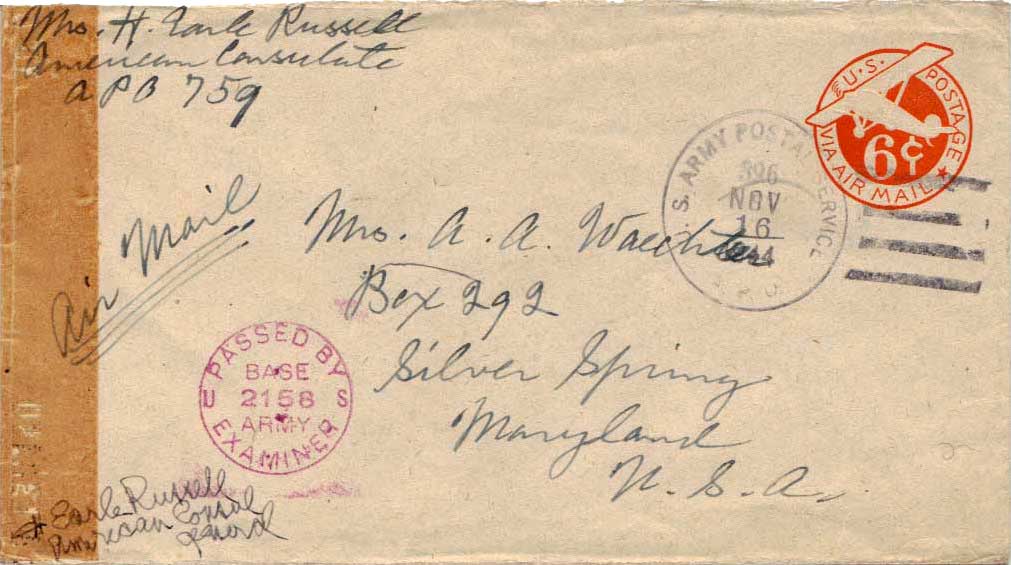 Mrs. H. Earle Russell
American Consulate
APO 759
U.S. POSTAGE
VIA AIR MAIL
6¢
U.S. ARMY POSTAL SERVICE
NOV
16
1944
A.P.O.
Air Mail
Mrs. A. A. Waechter
Box 292
Silver Spring
Maryland
U. S. A.
PASSED BY
BASE
U 2158 S
ARMY
EXAMINER
H Earle Russell
American Consul